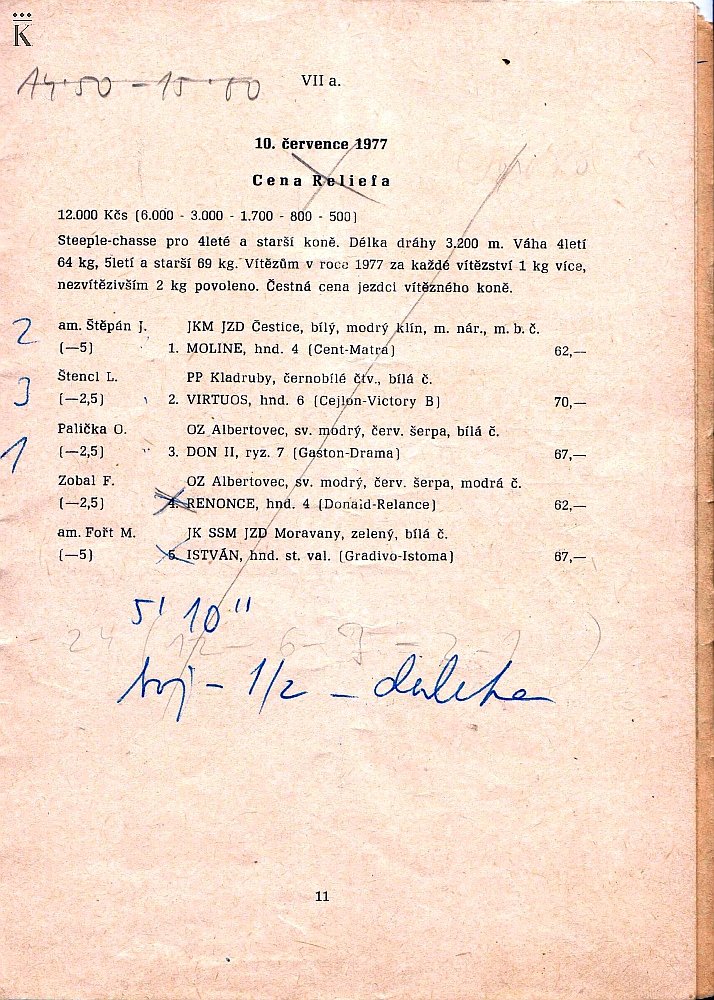 K
14.50 - 15.00
VII a.
10. července 1977
Cena Reliefa
12.000 Kčs (6.000 - 3.000 - 1.700 - 800 - 500)
Steeple-chasse pro 4leté a starší koně. Délka dráhy 3.200 m. Váha 4letí
64 kg, 5letí a starší 69 kg. Vítězům v roce 1977 za každé vítězství 1 kg více,
nezvítězivším 2 kg povoleno. Čestná cena jezdci vítězného koně.
2 am. Štěpán J. JKM JZD Čestice, bílý, modrý klín, m. nár., m. b. č.
(—5) 1. MOLINE, hnd. 4 (Cent-Matra) 62,—
3 Štencl L. PP Kladruby, černobílé čtv., bílá č.
(—2,5) 2. VIRTUOS, hnd. 6 (Cejlon-Victory B) 70,—
1 Palička O. OZ Albertovec, sv. modrý, červ. šerpa, bílá č.
(—2,5) 3. DON II, ryz. 7 (Gaston-Drama) 67,—
Zobal F. OZ Albertovec, sv. modrý, červ. šerpa, modrá č.
(—2,5) 4. RENONCE, hnd. 4 (Donald-Relance) 62,—
am. Fořt M. JK SSM JZD Moravany, zelený, bílá č.
(—5) 5. ISTVÁN, hnd. st. val. (Gradivo-Istoma) 67,—
5' 10"
boj - 1/2 - daleko
11